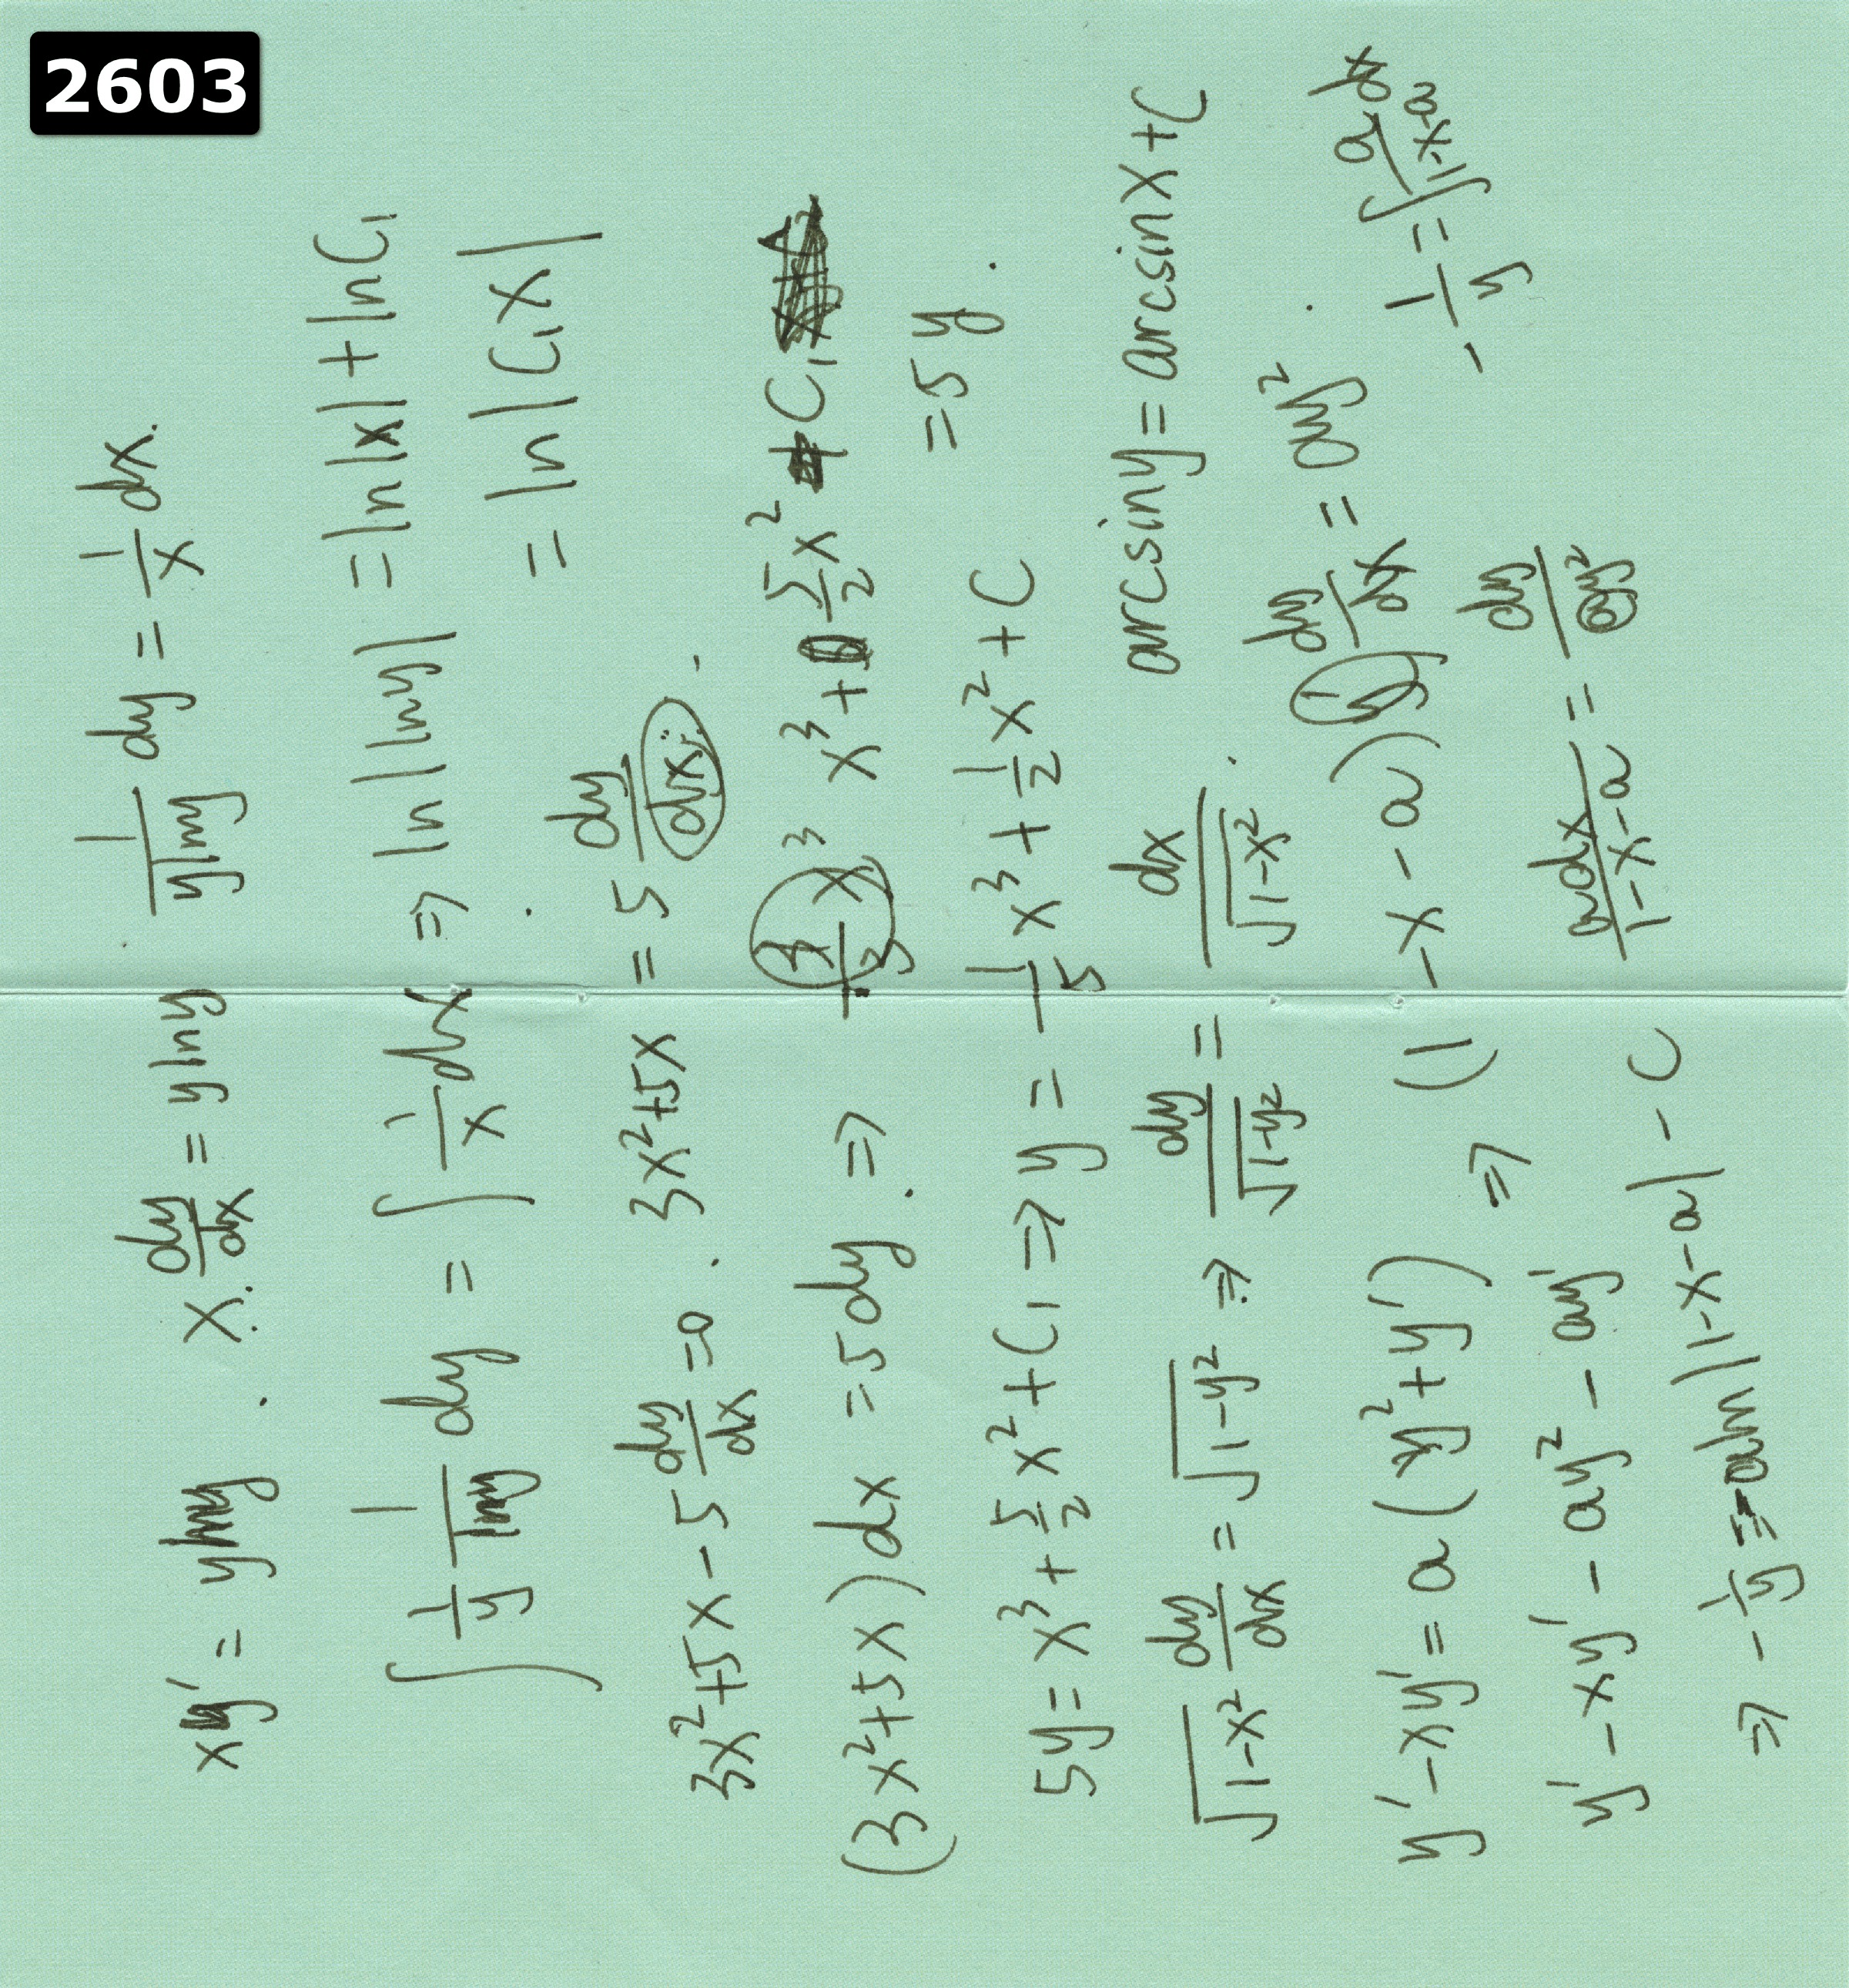 2603
xy' = ylny . x · dy/dx = ylny . 1/(ylny) dy = 1/x dx.
∫ 1/y 1/lny dy = ∫ 1/x dx ⇒ ln|lny| = ln|x| + lnC₁
= ln|C₁x|
3x²+5x-5 dy/dx =0 . 3x²+5x = 5 dy/dx .
(3x²+5x)dx =5dy . ⇒ x³ + 5/2 x² + C₁
= 5y .
5y = x³+ 5/2 x² + C₁ ⇒ y = 1/5 x³ + 1/2 x² + C
√(1-x²) dy/dx = √(1-y²) ⇒ dy/√(1-y²) = dx/√(1-x²) . arcsiny = arcsinx + C
y' - xy' = a(y²+y') (1 - x - a) dy/dx = ay² .
y' - xy' - ay² - ay' ⇒ adx/(1-x-a) = dy/y² - 1/y = ∫ a dx/(1-x-a)
⇒ - 1/y = -aln|1-x-a| - C